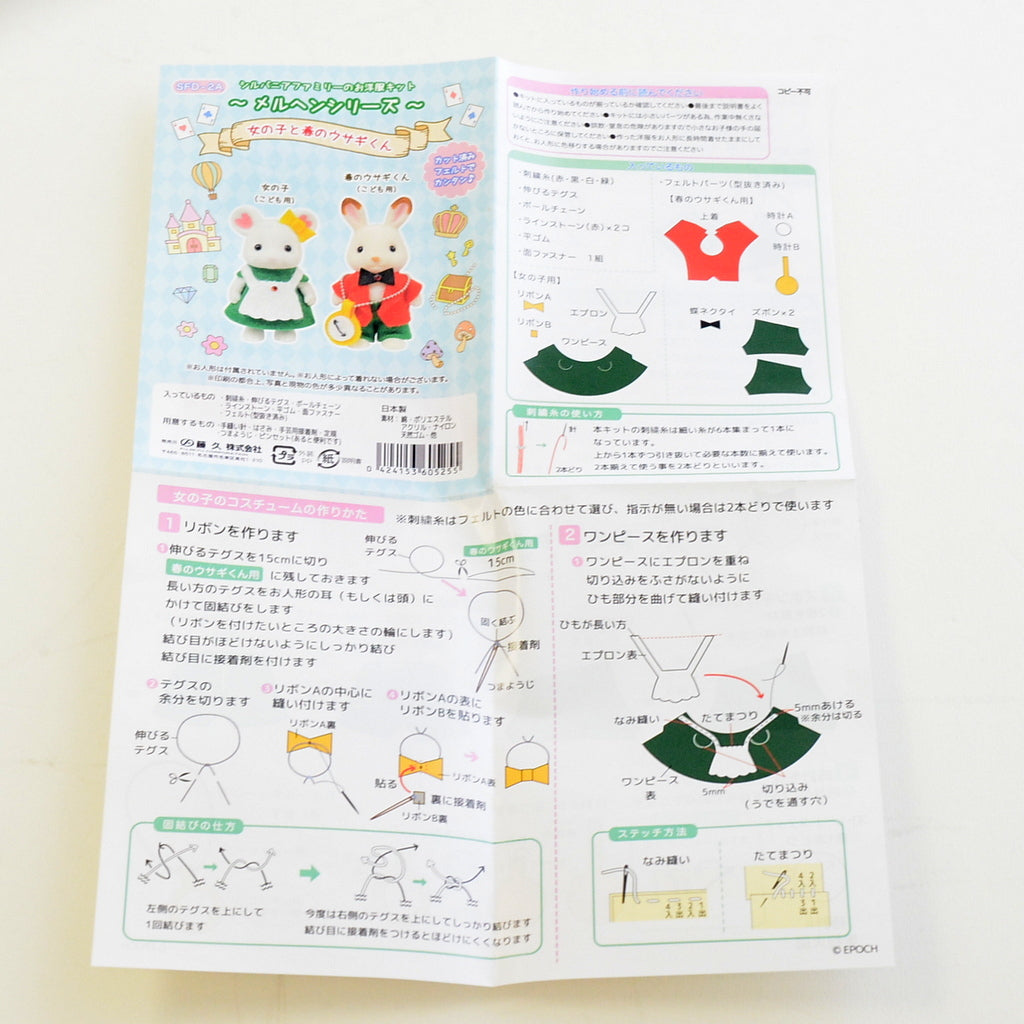 SFD-2A
シルバニアファミリーのお洋服キット
～メルヘンシリーズ～
女の子と春のウサギくん
カット済み
フェルトで
カンタン♪
女の子
(こども用)
春のウサギくん
(こども用)
※お人形は付属されていません。※お人形によって着れない場合がございます。
※印刷の都合上、写真と現物の色が多少異なることがあります。
入っているもの ・刺繍糸・伸びるテグス・ボールチェーン
・ラインストーン・平ゴム・面ファスナー
・フェルト(型抜き済み)
用意するもの ・手縫い針・はさみ・手芸用接着剤・定規
・つまようじ・ピンセット(あると便利です)
日本製
素材：綿・ポリエステル
アクリル・ナイロン
天然ゴム・他
藤久株式会社
プラ
外袋
PP
紙
説明書
0 424153 605255
作り始める前に読んでください
コピー不可
●キットに入っているものが揃っているか確認してください●最後まで説明書をよく
読んでから作り始めてください●キットには小さいパーツがある為、作業中無くさな
いようにご注意ください●誤飲・窒息の危険がありますので小さなお子様の手の届
かないところに保管してください●作った洋服をお人形に長時間着せたままにして
おくと、お人形に色移りする場合がありますのでご注意ください
入っているもの
・刺繍糸(赤・黒・白・緑)
・伸びるテグス
・ボールチェーン
・ラインストーン(赤)×2コ
・平ゴム
・面ファスナー 1組
・フェルトパーツ(型抜き済み)
【春のウサギくん用】
上着
時計A
時計B
蝶ネクタイ
ズボン×2
【女の子用】
リボンA
リボンB
エプロン
ワンピース
刺繍糸の使い方
針
2本どり
本キットの刺繍糸は細い糸が6本集まって1本に
なっています。
上から1本ずつ引き抜いて必要な本数に揃えて使います。
2本揃えて使う事を2本どりといいます。
女の子のコスチュームの作りかた
※刺繍糸はフェルトの色に合わせて選び、指示が無い場合は2本どりで使います
1 リボンを作ります
①伸びるテグスを15cmに切り
春のウサギくん用 に残しておきます
長い方のテグスをお人形の耳(もしくは頭)に
かけて固結びをします
(リボンを付けたいところの大きさの輪にします)
結び目がほどけないようにしっかり結び
結び目に接着剤を付けます
伸びる
テグス
春のウサギくん用
15cm
固く結ぶ
接着剤
つまようじ
②テグスの
余分を切ります
伸びる
テグス
③リボンAの中心に
縫い付けます
リボンA裏
④リボンAの表に
リボンBを貼ります
リボンA表
貼る
裏に接着剤
リボンB裏
固結びの仕方
左側のテグスを上にして
1回結びます
今度は右側のテグスを上にしてしっかり結びます
結び目に接着剤をつけるとほどけにくくなります
2 ワンピースを作ります
①ワンピースにエプロンを重ね
切り込みをふさがないように
ひも部分を曲げて縫い付けます
ひもが長い方
エプロン表
なみ縫い
たてまつり
5mmあける
※余分は切る
ワンピース
表
5mm
切り込み
(うでを通す穴)
ステッチ方法
なみ縫い
4入 3出 2入 1出
たてまつり
4入 2入
3出 1出
© EPOCH